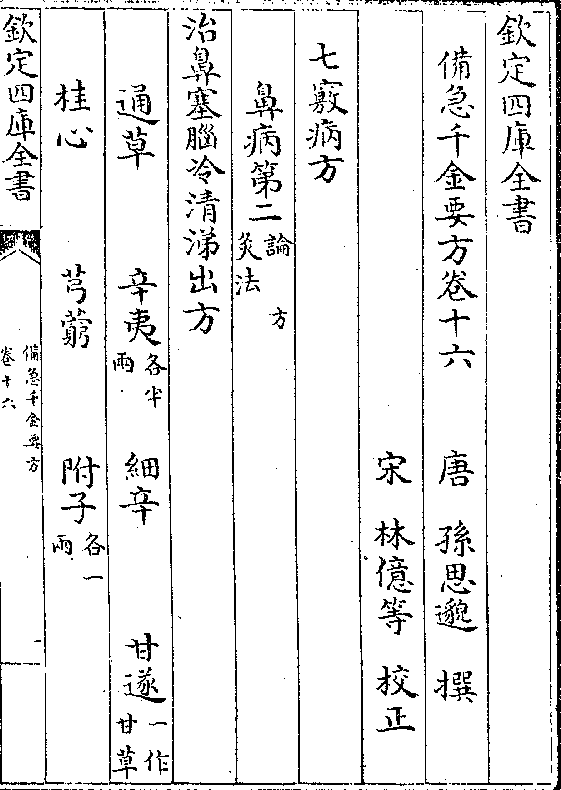 欽定四庫全書
備急千金要方卷十六
唐 孫思邈 撰
宋 林億等 校正
七竅病方
鼻病第二論 方 灸法
治鼻塞腦冷清涕出方
通草 辛夷各半兩 細辛 甘遂一作甘草
桂心 芎藭 附子各一兩
欽定四庫全書
備急千金要方
卷十六
一